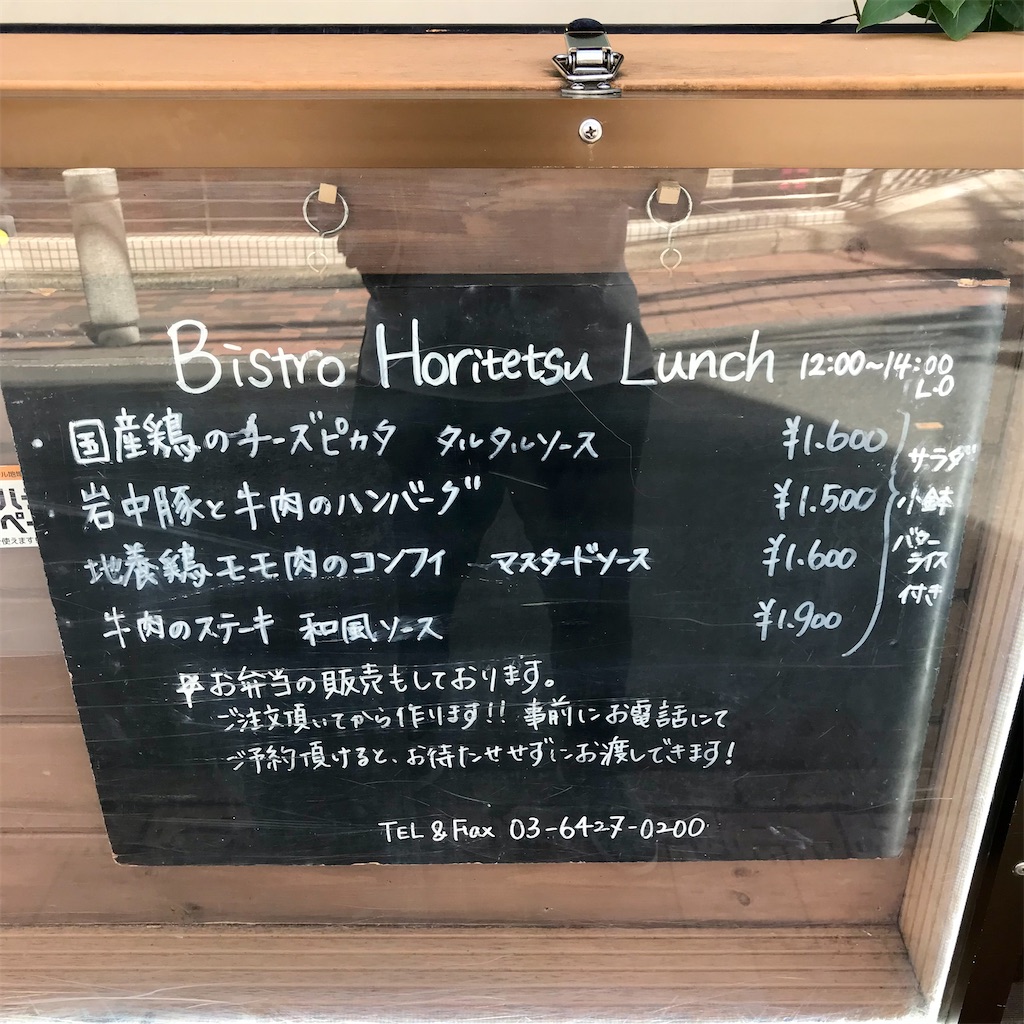 Bistro Horitetsu Lunch 12:00~14:00
L.O
国産鶏のチーズピカタ タルタルソース ¥1.600
岩中豚と牛肉のハンバーグ ¥1.500
地養鶏モモ肉のコンフィ マスタードソース ¥1.600
牛肉のステーキ 和風ソース ¥1.900
サラダ
小鉢
バター
ライス
付き
お弁当の販売もしております。
ご注文頂いてから作ります!! 事前にお電話にて
ご予約頂けると、お待たせせずにお渡しできます!
TEL & Fax 03-6427-0200